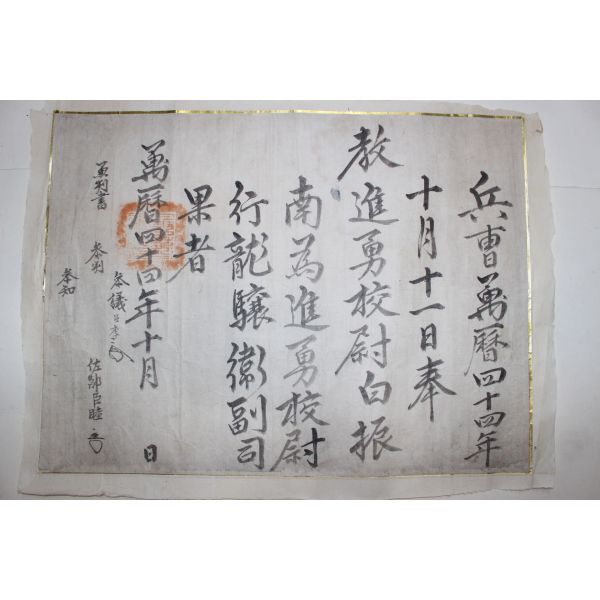 兵曹萬曆四十四年
十月十一日奉
教進勇校尉白振
南為進勇校尉
行龍驤衛副司
果者
萬曆四十四年十月　日
兼判書
參判
參議臣李
參知
佐郎臣睦